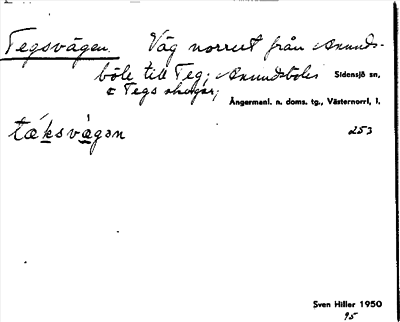 Tegsvägen. Väg norrut från Anunds-
böle till Teg; Anundsböles Sidensjö sn,
o Tegs skogar; Ångermanl. n. doms. tg., Västernorrl. l.
tæksvägən 253
Sven Hiller 1950
95